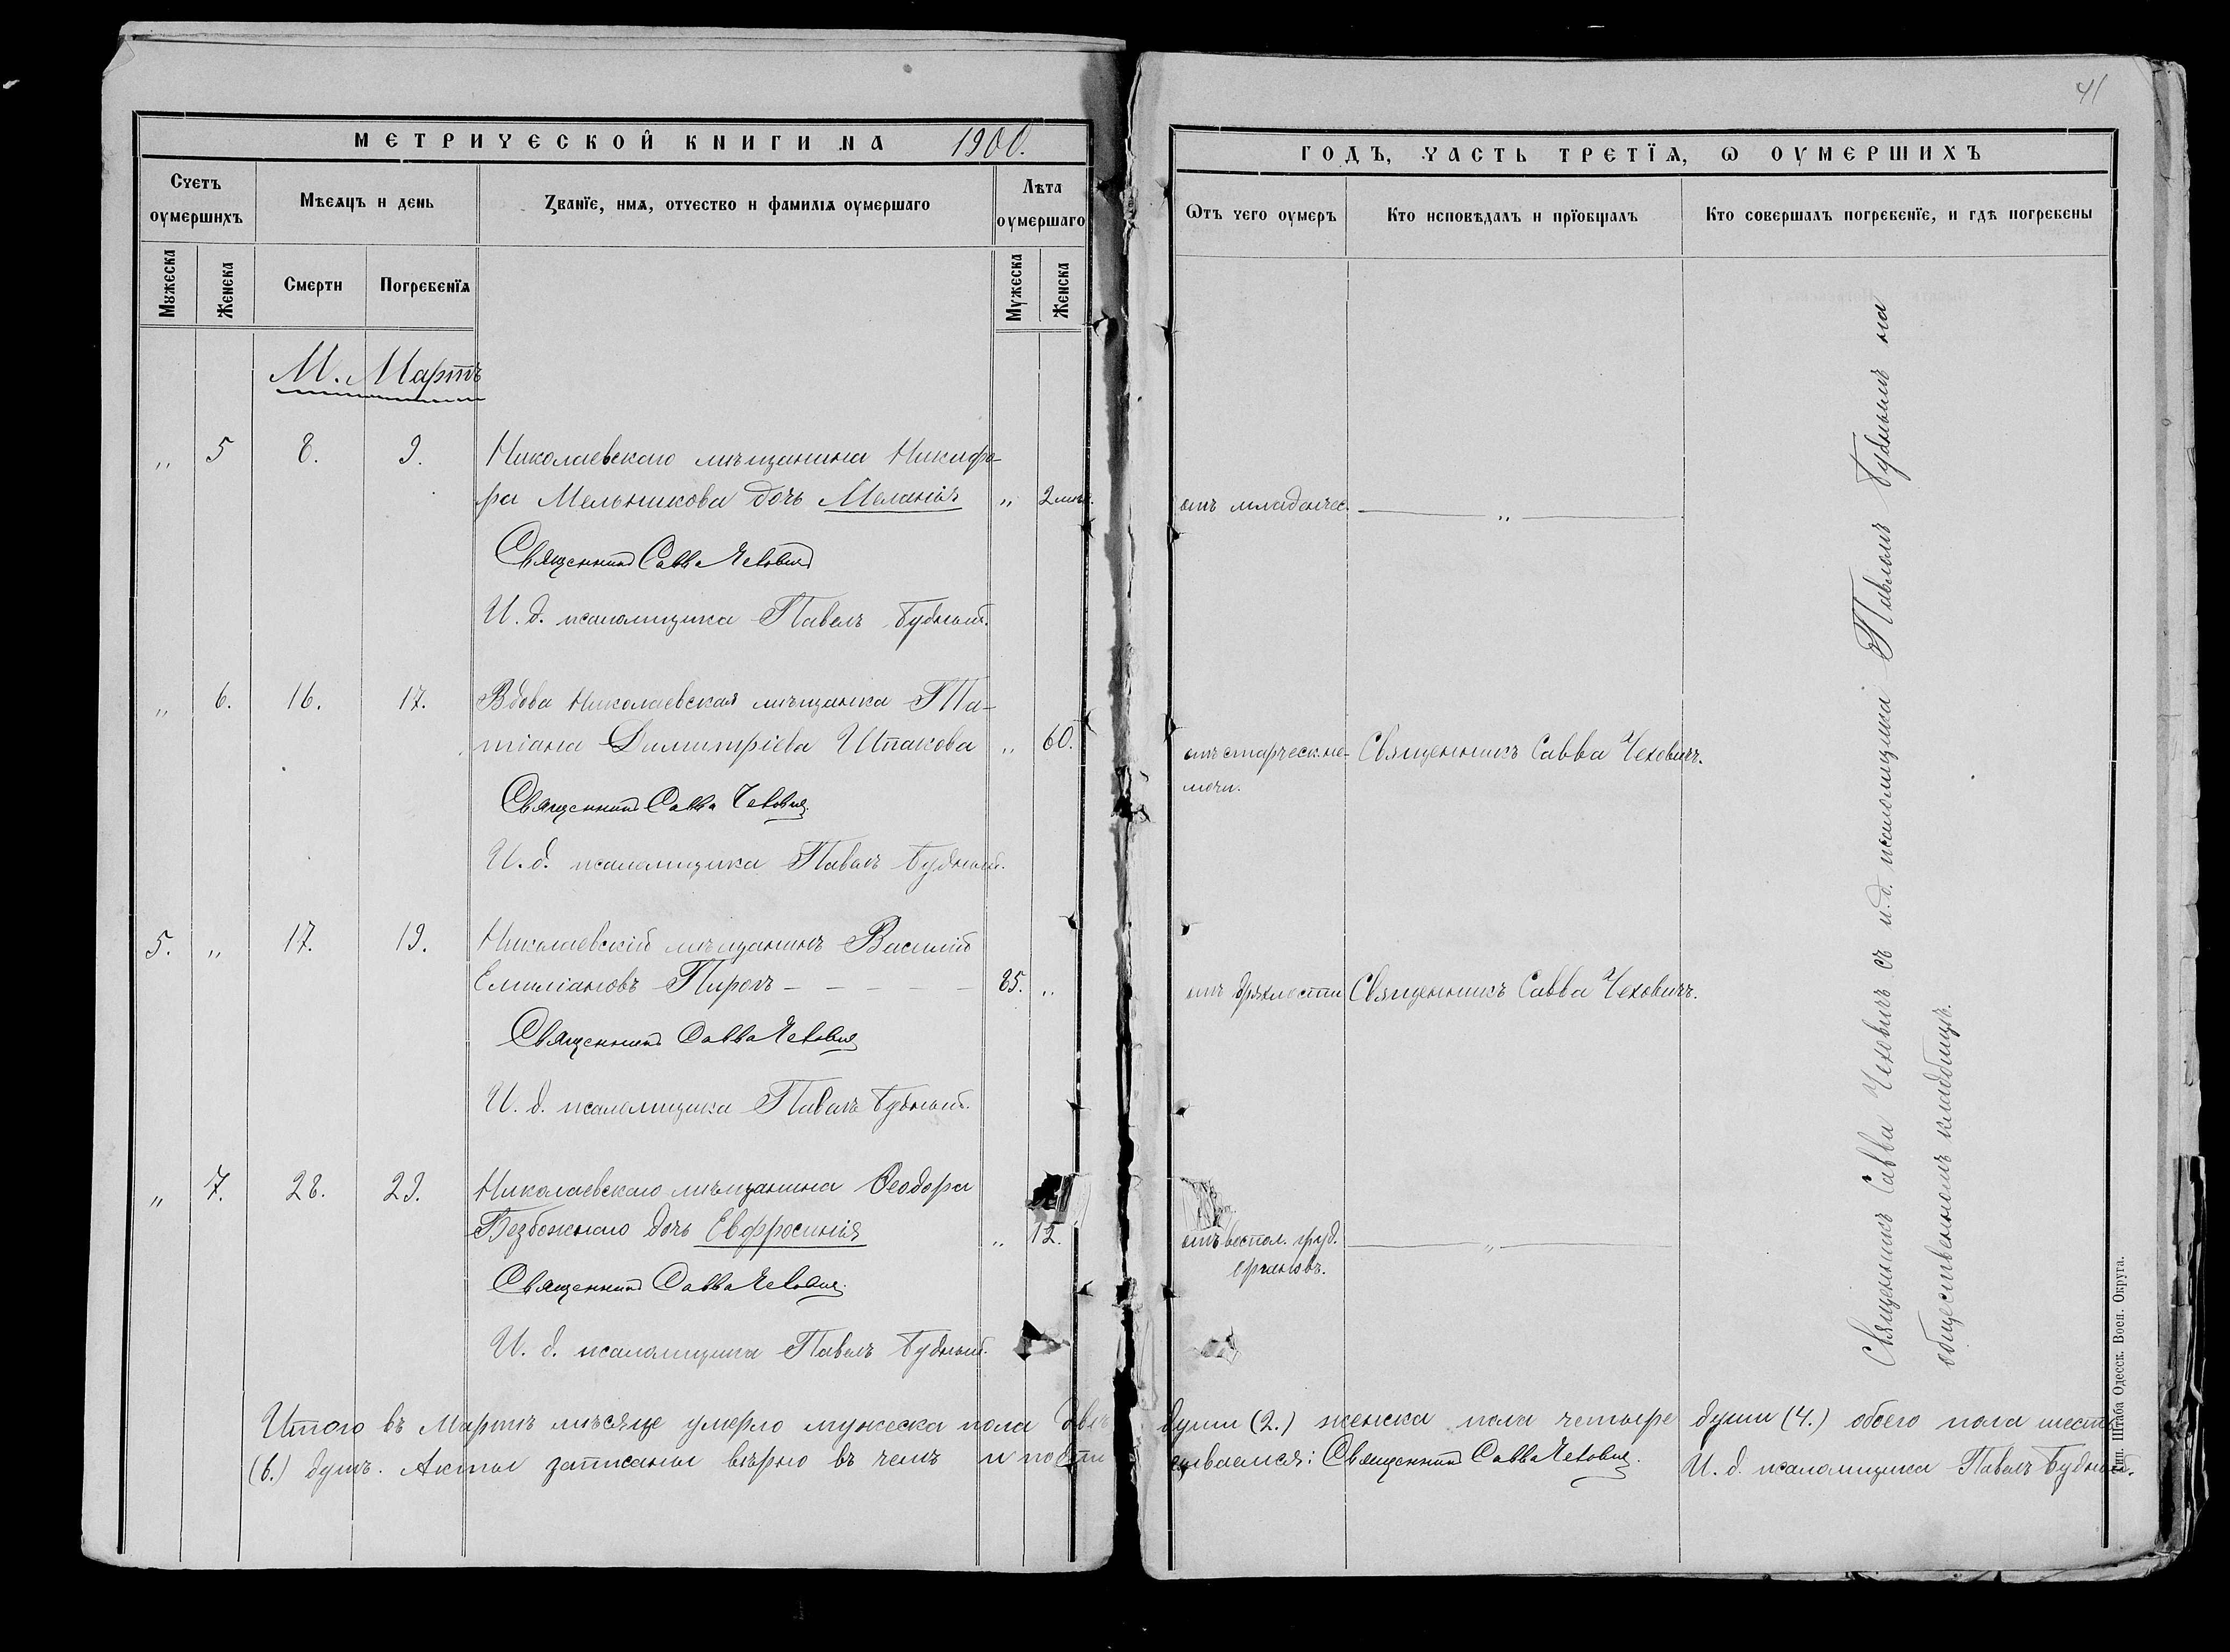 41
МЕТРИЧЕСКОЙ КНИГИ НА 1900.
ГОДЪ, ЧАСТЬ ТРЕТЇѦ, Ѡ ОУМЕРШИХЪ
Счетъ оумершихъ
Мѣсѧцъ и день
Званїе, имѧ, отчество и фамилїѧ оумершаго
Лѣта оумершаго
Ѿтъ чего оумеръ
Кто исповѣдалъ и прїобщалъ
Кто совершалъ погребенїе, и гдѣ погребены
Мужеска
Женска
Смерти
Погребенїѧ
Мужеска
Женска
М. Мартъ
„ 5 8. 9. Николаевскаго мѣщанина Никифо-
ра Мельникова дочь Меланія „ 2 отъ младенчес. „
Священникъ Савва Чеховичъ
И. д. псаломщика Павелъ Будный.
„ 6. 16. 17. Вдова Николаевская мѣщанка Та-
тіана Димитріева „ 60. отъ старческ. не- Священникъ Савва Чеховичъ.
мочи.
Священникъ Савва Чеховичъ
И. д. псаломщика Павелъ Будный.
5. „ 17. 19. Николаевскій мѣщанинъ Василій
Емиліановъ Пирогъ 85. „ отъ дряхлости Священникъ Савва Чеховичъ.
Священникъ Савва Чеховичъ
И. д. псаломщика Павелъ Будный.
„ 7. 28. 29. Николаевскаго мѣщанина Ѳеодора
Безбожнаго дочь Евфросинія „ 12. отъ воспал. груд. „
органовъ.
Священникъ Савва Чеховичъ
И. д. псаломщика Павелъ Будный.
Священникъ Савва Чеховичъ съ и. д. псаломщика Павломъ Буднымъ на
общественномъ кладбищѣ.
Итого въ Мартѣ мѣсяце умерло мужеска пола двѣ души (2.) женска пола четыре души (4.) обоего пола шесть
(6.) душъ. Акты записаны вѣрно въ чемъ и подписываемся: Священникъ Савва Чеховичъ. И. д. псаломщика Павелъ Будный.
Тип. Штаба Одесск. Воен. Округа.